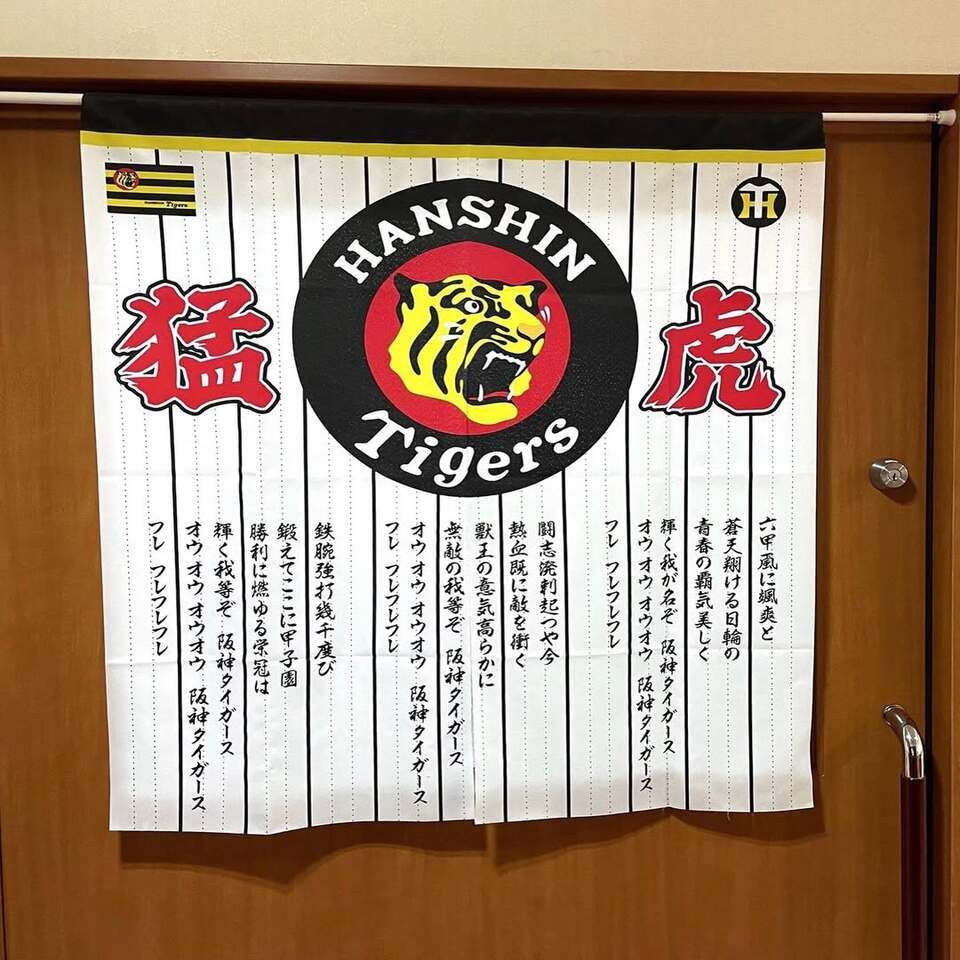 HANSHIN
Tigers
猛
虎
Tigers
六甲颪に颯爽と
蒼天翔ける日輪の
青春の覇気美しく
輝く我が名ぞ 阪神タイガース
オウ オウ オウオウ 阪神タイガース
フレ フレフレフレ
闘志溌剌起つや今
熱血既に敵を衝く
獣王の意気高らかに
無敵の我等ぞ 阪神タイガース
オウ オウ オウオウ 阪神タイガース
フレ フレフレフレ
鉄腕強打幾千度び
鍛えてここに甲子園
勝利に燃ゆる栄冠は
輝く我等ぞ 阪神タイガース
オウ オウ オウオウ 阪神タイガース
フレ フレフレフレ